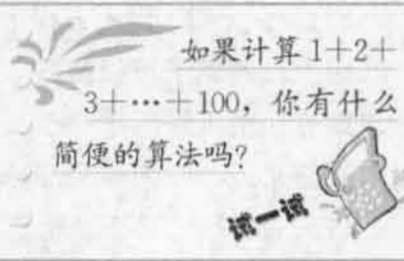 如果计算1+2+
3+…+100，你有什么
简便的算法吗？
试一试